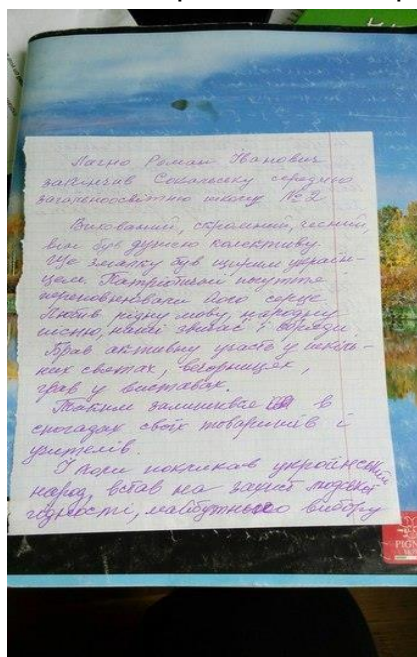 Лагно Роман Іванович
закінчив Сокальську середню
загальноосвітню школу №2
Вихований, скромний, чесний,
він був душею колективу.
Ще змалку був щирим україн-
цем. Патріотичні почуття
переповнювали його серце.
Любив рідну мову, народну
пісню, наші звичаї і обряди.
Брав активну участь у шкіль-
них святах, вечорницях,
грав у виставах.
Таким залишився в
спогадах своїх товаришів і
учителів.
І коли покликав український
народ, встав на захист людської
гідності, майбутнього вибору
PIGN